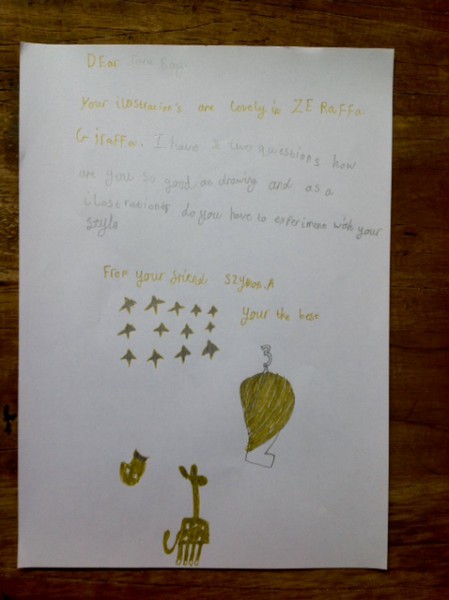 DEar
Your ilostration's are lovely in ZERaFFa
GiraFFa. I have two questions how
are you so good at drawing and as a
ilosorationis do you have to experiment with your
style
From your friend SZYmon.A
Your the best